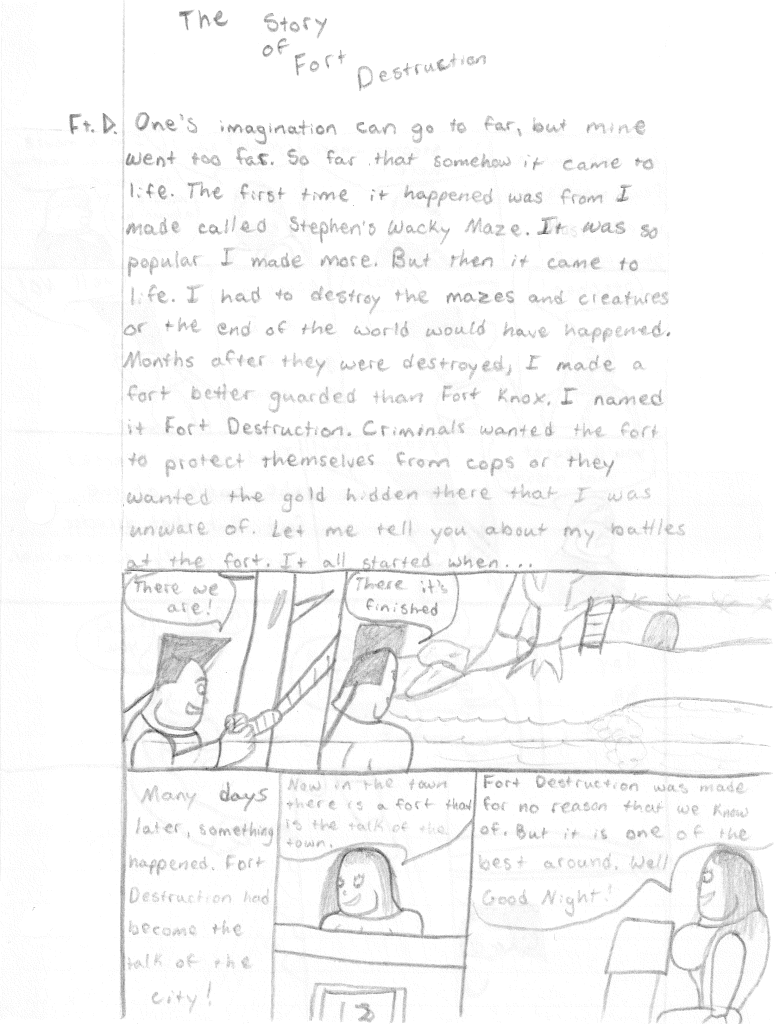 The Story
of
Fort Destruction
Ft. D. One's imagination can go to far, but mine
went too far. So far that somehow it came to
life. The first time it happened was from I
made called Stephen's Wacky Maze. It was so
popular I made more. But then it came to
life. I had to destroy the mazes and creatures
or the end of the world would have happened.
Months after they were destroyed, I made a
fort better guarded than Fort Knox. I named
it Fort Destruction. Criminals wanted the fort
to protect themselves from cops or they
wanted the gold hidden there that I was
unware of. Let me tell you about my battles
at the fort. It all started when...
There we
are!
There it's
finished
Many days
later, something
happened. Fort
Destruction had
become the
talk of the
city!
Now in the town
there is a fort that
is the talk of the
town.
13
Fort Destruction was made
for no reason that we know
of. But it is one of the
best around. Well
Good Night!